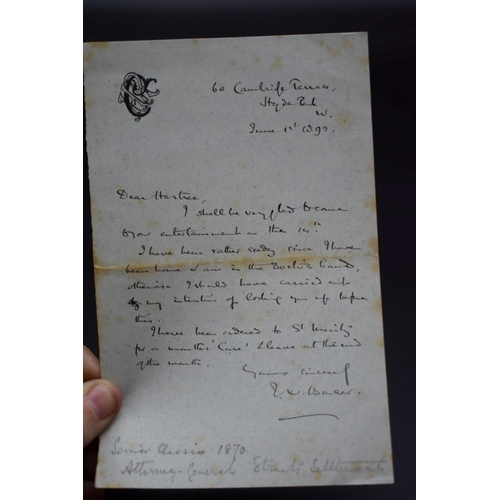 60 Cambridge Terrace,
Hyde Park
W.
June 1st 1897.
Dear Hartree,
I shall be very glad to come
to your entertainment on the
I have been rather seedy since I have
been home & am in the Doctor's hands,
otherwise I should have carried out
my intention of looking you up before
this.
I have been ordered to St Moritz
for a months' 'Cure' & leave at the end
of the month.
Yours sincerely
Senior Classic 1870
Attorney-General Straits Settlements